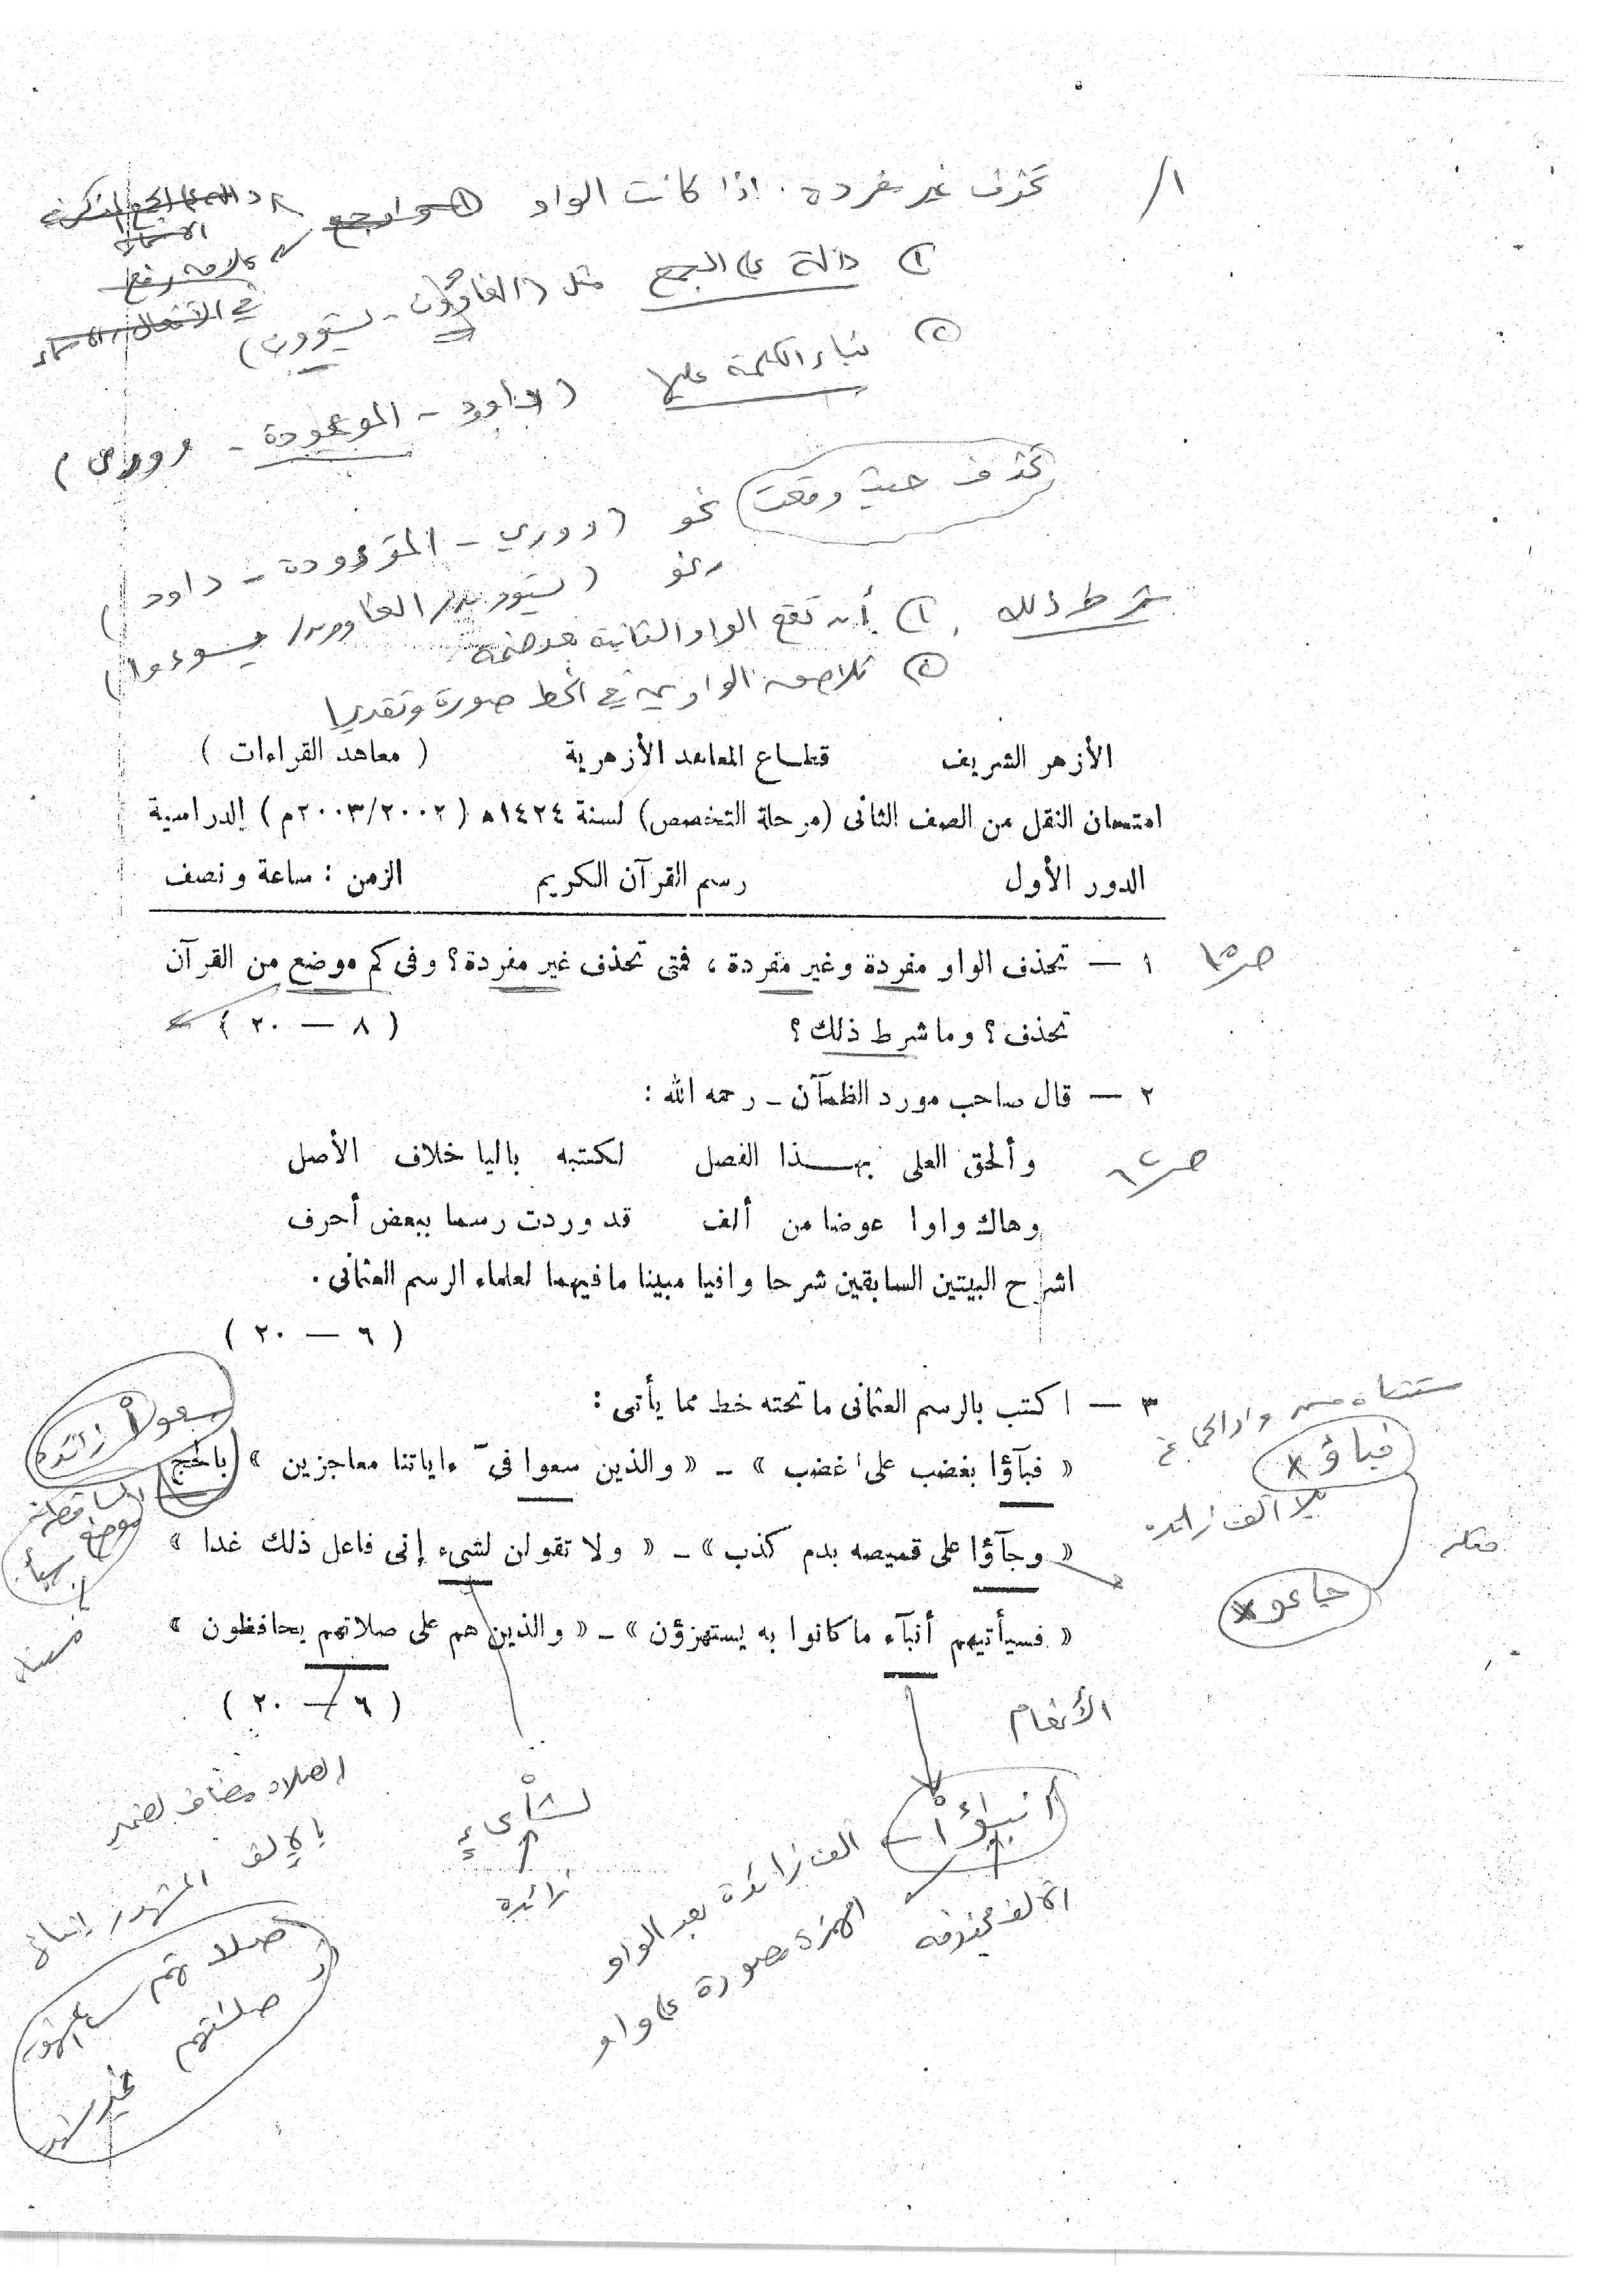 ١/ تحذف غير مفردة . اذا كانت الواو
① دالة على الجمع مثل (الغاوون - يستوون)
② بناء الكلمة عليها (داود - الموءودة - وورى)
تحذف حيث وقعت نحو (ووري - الموءودة - داود)
شرط ذلك ① أن تقع الواو الثانية بعد ضمة
② تلاصق الواوين في الخط صورة وتقديرا
الأزهر الشريف قطاع المعاهد الأزهرية ( معاهد القراءات )
امتحان النقل من الصف الثانى (مرحلة التخصص) لسنة ١٤٢٤ه ( ٢٠٠٣/٢٠٠٢م ) الدراسية
الدور الأول رسم القرآن الكريم الزمن : ساعة ونصف
١ — تحذف الواو مفردة وغير مفردة ، فمتى تحذف غير مفردة ؟ وفى كم موضع من القرآن
تحذف ؟ وما شرط ذلك ؟ ( ٨ — ٢٠ )
٢ — قال صاحب مورد الظمآن - رحمه الله :
وألحق العلى بهذا الفصل لكتبه باليا خلاف الأصل
وهاك واوا عوضا من ألف قد وردت رسما ببعض أحرف
اشرح البيتين السابقين شرحا وافيا مبينا ما فيهما لعلماء الرسم العثمانى .
( ٦ — ٢٠ )
٣ — اكتب بالرسم العثمانى ما تحته خط مما يأتى :
« فبآؤا بغضب على غضب » - « والذين سعوا فىٓ ءاياتنا معاجزين » بالحج
« وجآؤا على قميصه بدم كذب » - « ولا تقولن لشىء إنى فاعل ذلك غدا »
« فسيأتيهم أنبآء ما كانوا به يستهزؤن » - « والذين هم على صلاتهم يحافظون »
( ٦ — ٢٠ )
سعوا زائدة
فباؤ
بلا الف زائدة
جاءو
الأنعام
أنبـٰؤا
الف زائدة بعد الواو
الهمزة مصورة على واو
الالف محذوفة
لشاىء
زائدة
الصلاة مضاف لضمير
بالالف المشهور إثبات
صلاتهم
صلـٰتهم